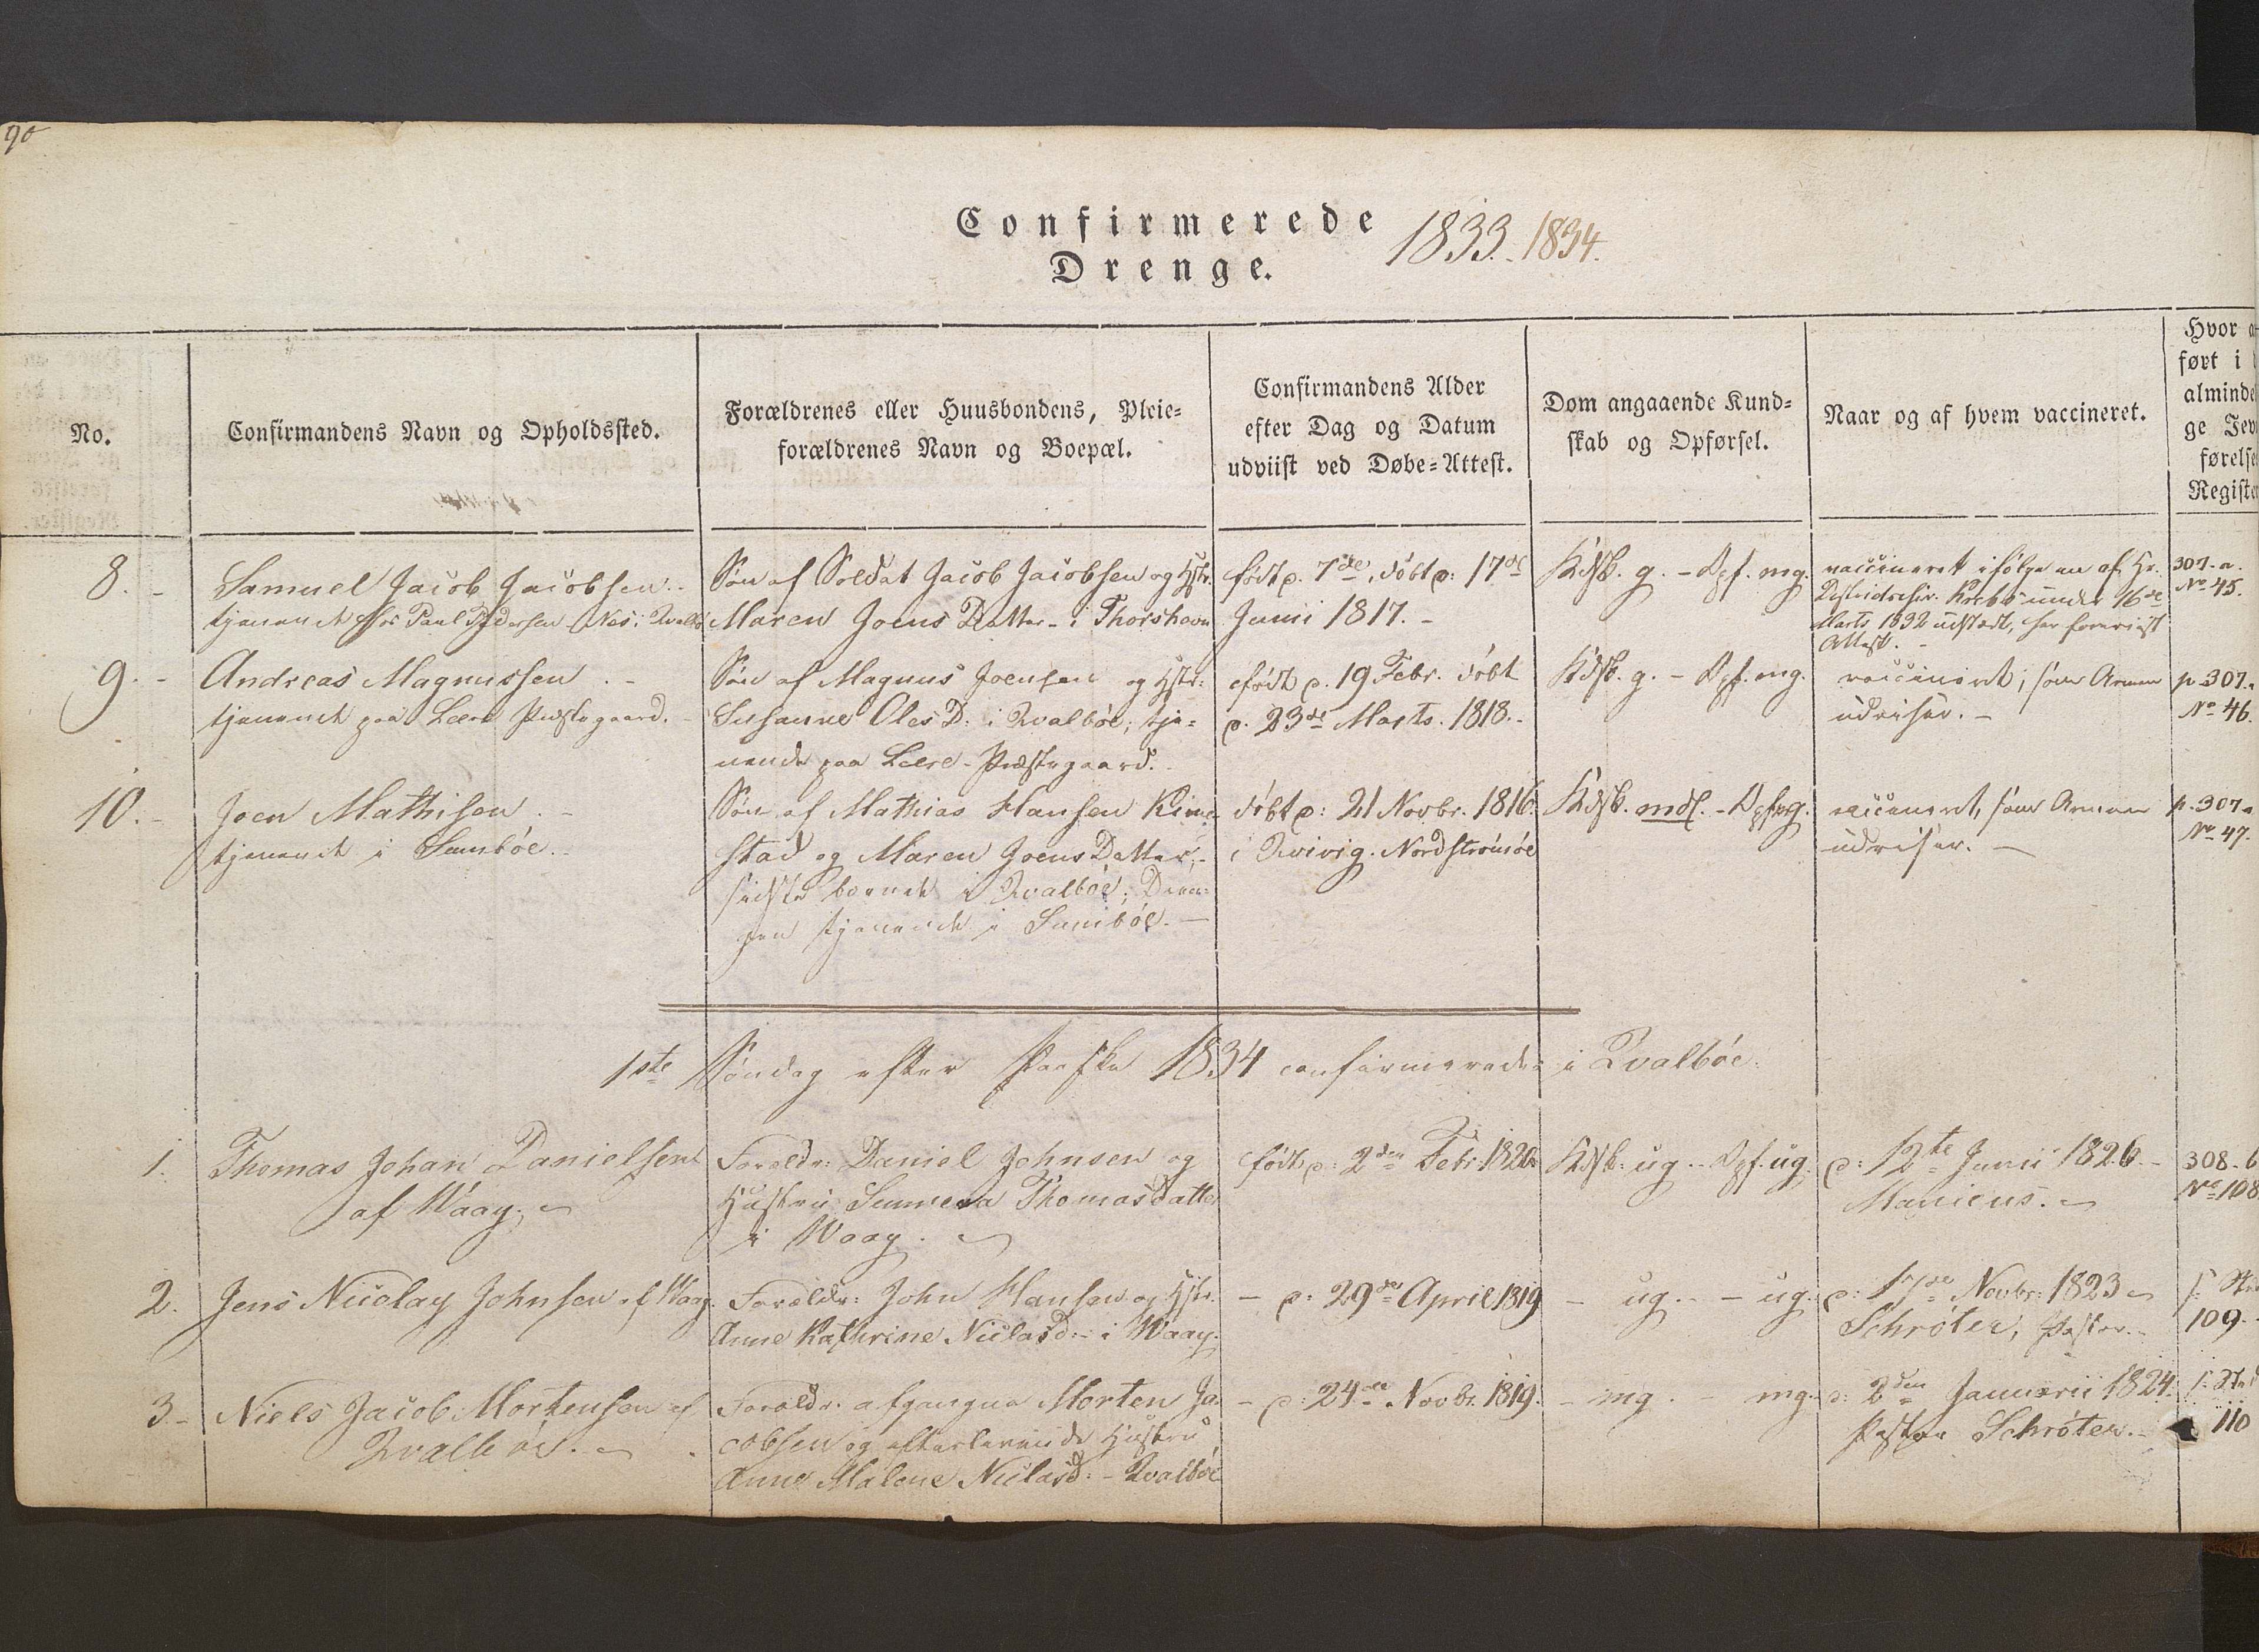 90
Confirmerede
Drenge.
1833. 1834.
No.
Confirmandens Navn og Opholdssted.
Forældrenes eller Huusbondens, Pleie=
forældrenes Navn og Boepæl.
Confirmandens Alder
efter Dag og Datum
udviist ved Døbe=Attest.
Dom angaaende Kund=
skab og Opførsel.
Naar og af hvem vaccineret.
Hvor
ført i
alminde
ge Jev
førelse
Register
8.
Samuel Jacob Jacobsen
tjenende hos Poul Pedersen Næs i Qvalbø
Søn af Soldat Jacob Jacobsen og Hstr.
Maren Joens Datter - i Thorshavn
født d. 7de, døbt d: 17de
Junii 1817. -
Kdsk. g. - Opf. mg.
vaccineret ifølge en af Hr.
Districtschir. Krebs under 16de
Marts 1832 udstædt, her foreviist
Attest. -
307-a.
No 45.
9. -
Andreas Magnussen . -
tjenende paa Præstegaard.
Søn af Magnus Joensen og Hstr:
Susanne Oles D: i Qvalbøe; tje=
nende paa Præstegaard.
født d. 19 Febr. døbt
d. 23de Marts. 1818. -
Kdsk. g. - Opf. mg.
vaccineret, som Armen
udviser. -
p. 307.a
No 46.
10. -
Joen Mathisen . -
tjenende i Sumbøe.
Søn af Mathias Hansen
stad og Maren Joens Datter, -
sidste boende i Qvalbøe; Dren=
gen tjenende i Sumbøe. -
døbt d: 21 Novbr. 1816.
i Qvivig. Nordstrømøe
Kdsk. mdl. - Opf. g.
vaccineret, som Armen
udviser. -
p. 307a
No 47.
1ste Søndag efter Paaske 1834 confirmerede i Qvalbøe.
1.
Thomas Johan Danielsen
af Waag.
Forældr: Daniel Johnsen og
Hustru Sunneva Thomasdatter
i Waag.
født d: 2den Febr. 1820.
Kdsk: ug. - Opf. ug.
d: 12te Junii 1826. -
Manicus.
308-b
No 108
2.
Jens Nicolay Johnsen af Waag.
Forældr: John Hansen og Hstr.
Anne Kathrine Niclasd: - i Waag.
- d: 29de April 1819
- ug. - - ug.
d: 17de Novbr: 1823
Schrøter, Pastor. -
109.
3. -
Niels Jacob Mortensen af
Qvalbøe.
Forældr. afgangne Morten Ja=
cobsen og efterlevende Hustru
Anne Malene Niclasd: - Qvalbøe
- d: 24de Novbr. 1819.
- mg. - mg.
d: 2den Januarii 1824.
Pastor Schrøter. -
110